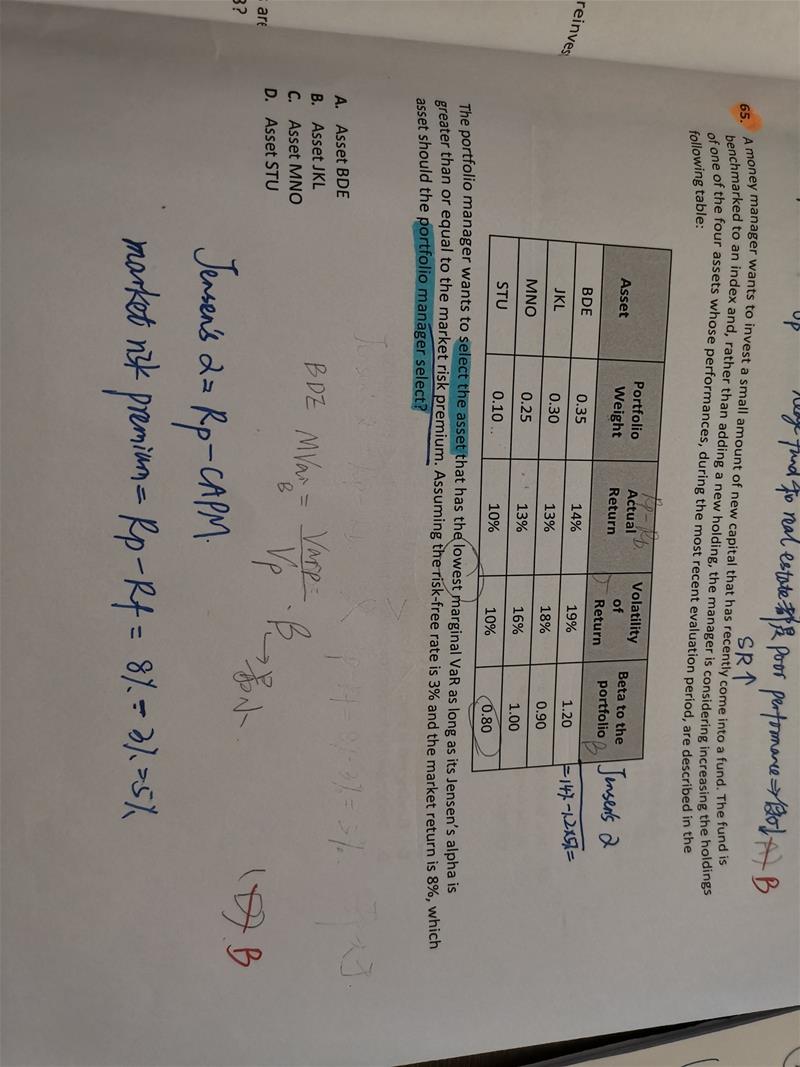 hedge fund to real estate poor performance ⇒
SR↑
B
reinves
65. A money manager wants to invest a small amount of new capital that has recently come into a fund. The fund is
benchmarked to an index and, rather than adding a new holding, the manager is considering increasing the holdings
of one of the four assets whose performances, during the most recent evaluation period, are described in the
following table:
Asset Portfolio Weight Actual Return Volatility of Return Beta to the portfolio
Rp-Rb
B
Jensen's α
BDE 0.35 14% 19% 1.20 =14%-1.2×5%=
JKL 0.30 13% 18% 0.90
MNO 0.25 13% 16% 1.00
STU 0.10 10% 10% 0.80
The portfolio manager wants to select the asset that has the lowest marginal VaR as long as its Jensen's alpha is
greater than or equal to the market risk premium. Assuming the risk-free rate is 3% and the market return is 8%, which
asset should the portfolio manager select?
A. Asset BDE
B. Asset JKL
C. Asset MNO
D. Asset STU
are
3?
BDE MVar = Varp/Vp · B
B
Jensen's α = Rp - CAPM.
market risk premium = Rp - Rf = 8% - 3% = 5%